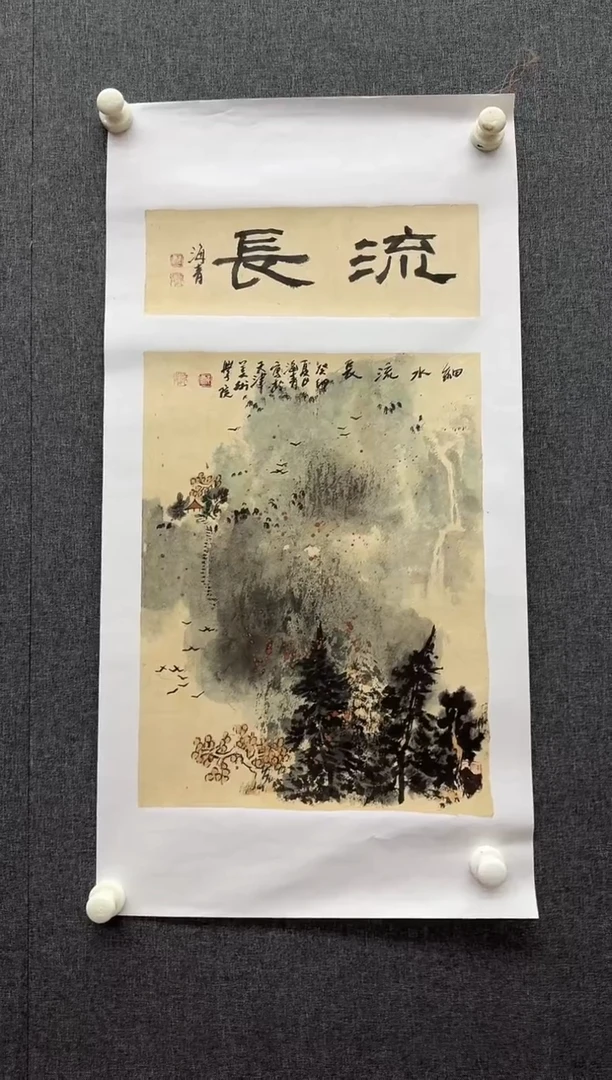 流長
海青
細水流長
癸卯
夏日
海青
寫於
天津
美術
學院